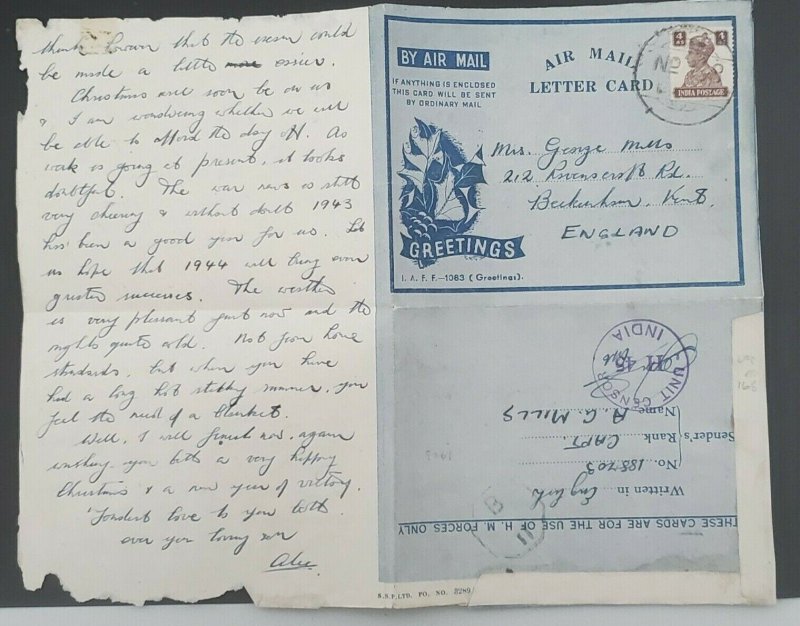 that the exam could
be made a little easier.
Christmas will soon be on us
& I am wondering whether we will
be able to afford the day off. As
work is going at present, it looks
doubtful. The war news is still
very cheering & without doubt 1943
has been a good year for us. Let
us hope that 1944 will bring even
greater successes. The weather
is very pleasant just now and the
nights quite cold. Not from home
standards, but when you have
had a long hot summer, you
feel the need of a blanket.
Well, I will finish now, again
wishing you both a very happy
Christmas & a new year of victory.
Fondest love to you both
ever your loving son
Alec
BY AIR MAIL
IF ANYTHING IS ENCLOSED
THIS CARD WILL BE SENT
BY ORDINARY MAIL
AIR MAIL
LETTER CARD
4 AS
INDIA POSTAGE
Mrs. George Mills
212 Ravenscroft Rd.
Beckenham, Kent.
ENGLAND
GREETINGS
I. A. F. F.—1083 (Greetings).
THESE CARDS ARE FOR THE USE OF H. M. FORCES ONLY
Written in English
No. 188703
Sender's Rank CAPT.
Name A. G. MILLS
UNIT CENSOR
H 45
INDIA
S.N.P.LTD. PO. NO. 8289